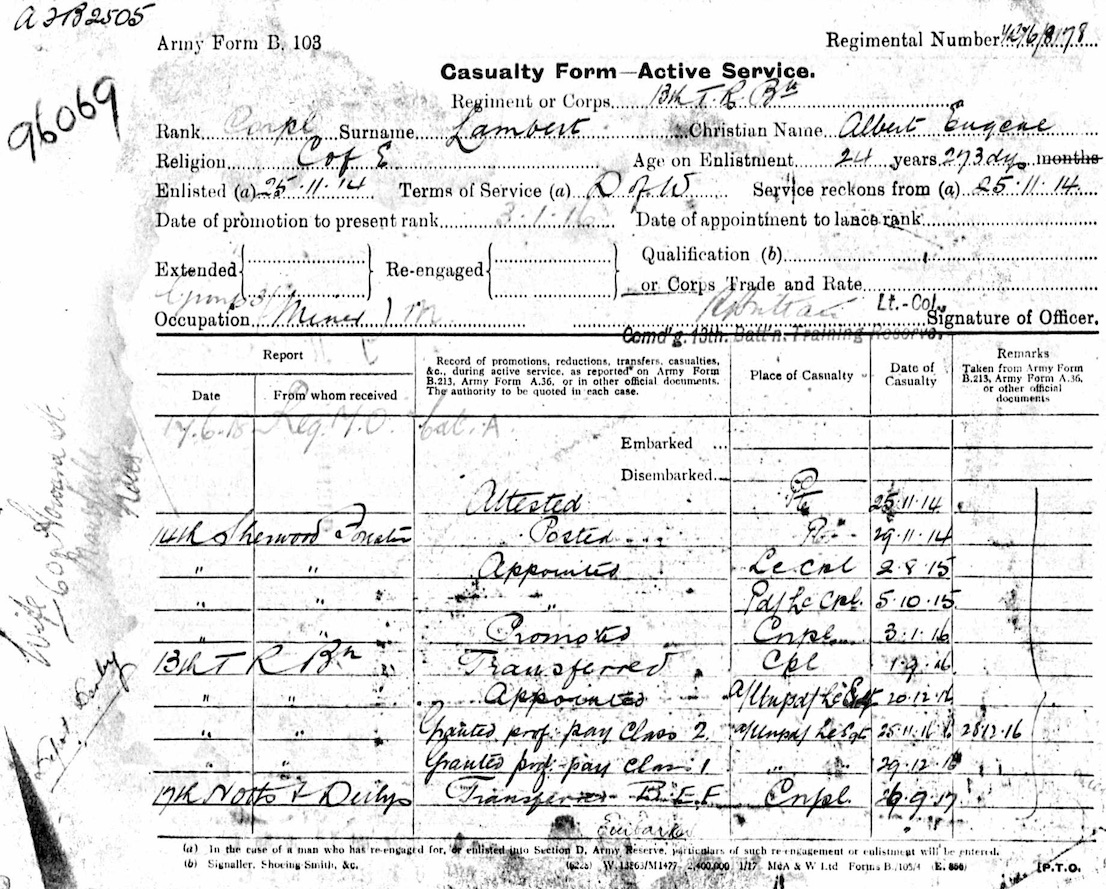 A F B 2505
Army Form B. 103
Regimental Number
96069
Casualty Form—Active Service.
Regiment or Corps 13th T. R. Bn
Rank Corpl Surname Lambert Christian Name Albert Eugene
Religion C of E Age on Enlistment 24 years 273 dys months
Enlisted (a) 25.11.14 Terms of Service (a) D of W Service reckons from (a) 25.11.14
Date of promotion to present rank 3.1.16 Date of appointment to lance rank
Extended Re-engaged Qualification (b)
or Corps Trade and Rate
Occupation Miner Lt.-Col. Signature of Officer.
Comd'g. 13th. Batt'n. Training Reserve.
Report
Date From whom received
Record of promotions, reductions, transfers, casualties, &c., during active service, as reported on Army Form B.213, Army Form A.36, or in other official documents. The authority to be quoted in each case.
Place of Casualty
Date of Casualty
Remarks Taken from Army Form B.213, Army Form A.36, or other official documents
17.6.18 Reg. M.O. Cat. A
Embarked ...
Disembarked...
Attested Pte 25.11.14
14th Sherwood Forester Posted Pte 29.11.14
" " Appointed L Cpl 2.8.15
" " " Pd/ L Cpl. 5.10.15
" " Promoted Corpl. 3.1.16
13th T R Bn Transferred Cpl 1.9.16
" " Appointed A/Unpd/ L Sgt 20.12.16
" " Granted prof. pay Class 2 A/Unpd/ L Sgt 25.11.16 28.12.16
" " Granted prof. pay Class 1 " " 29.12.16
17th Notts & Derbys Transferred B.E.F. Corpl. 26.9.17
Embarked
Wife
(a) In the case of a man who has re-engaged for, or enlisted into Section D, Army Reserve, particulars of such re-engagement or enlistment will be entered.
(b) Signaller, Shoeing-Smith, &c. W.13863/M1477 2,400,000 1/17 McA & W Ltd Forms B./103/4 (E. 856) [P.T.O.